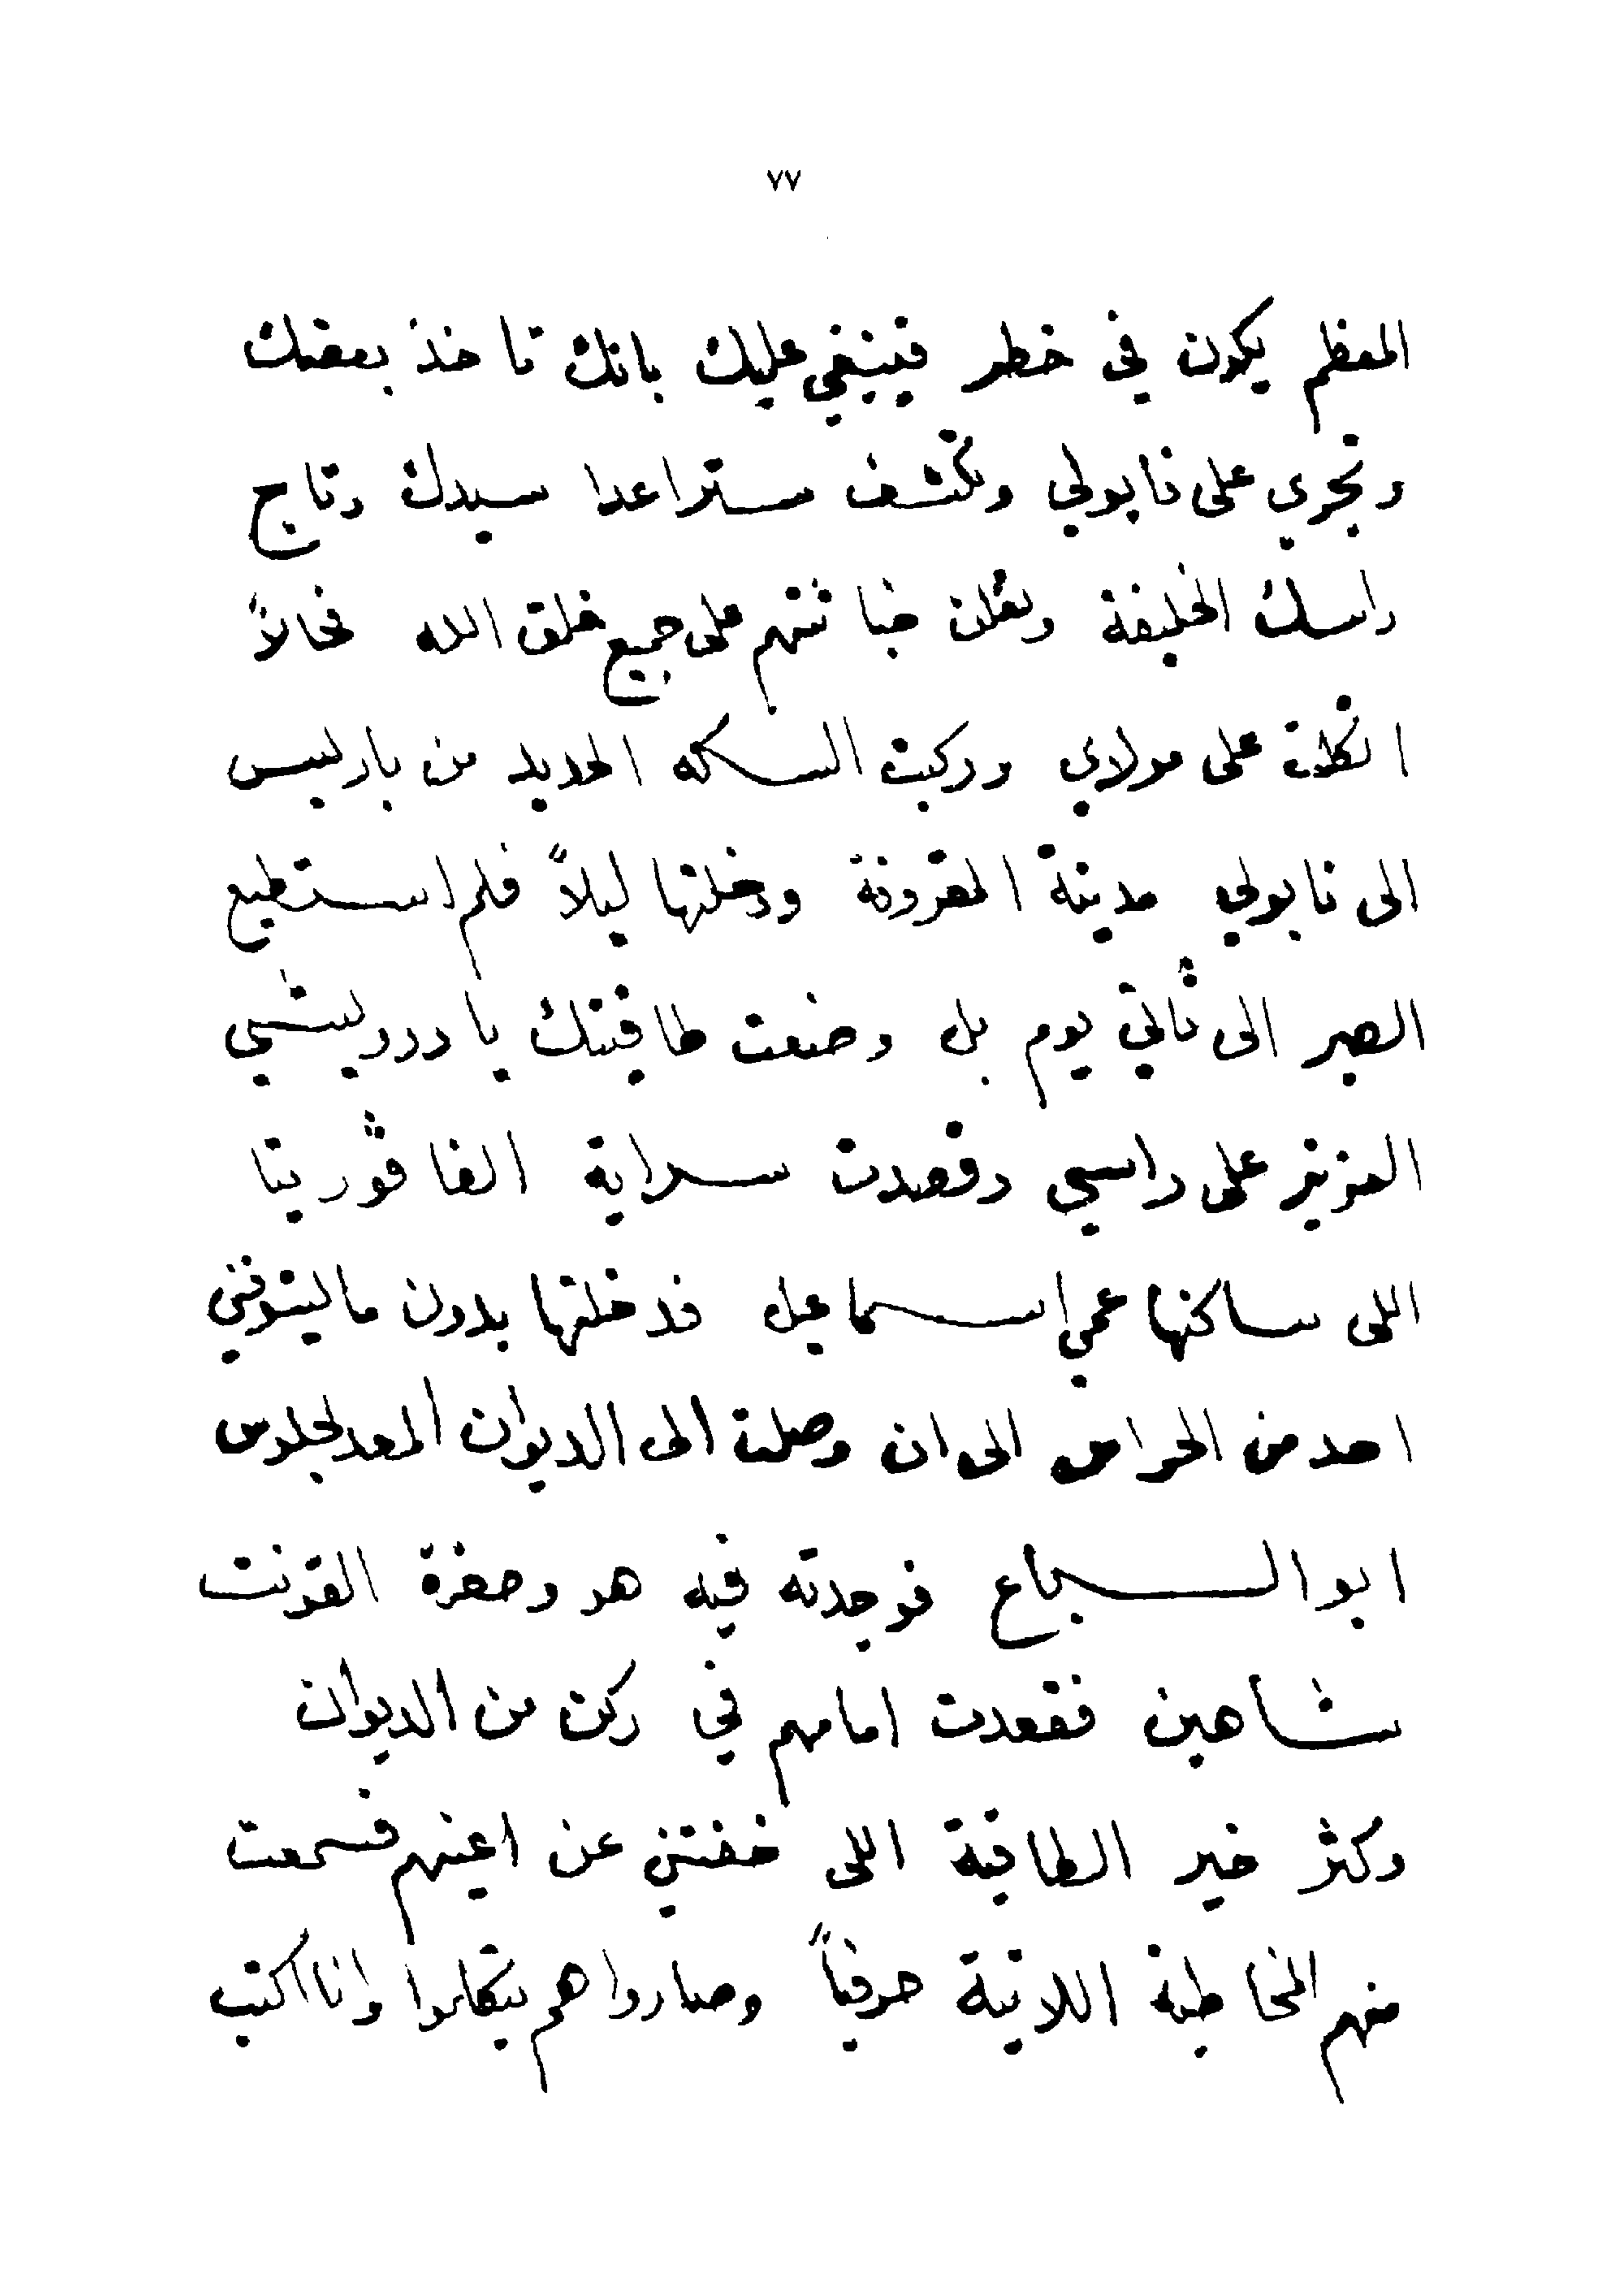 ٧٧
المعظم يكون في خطر فينبغي عليك بانك تاخذ بعضك
وتجري على نابولي وتكشف ستر اعدا سيدك وتاج
راسك الخليفة وتعلن خيانتهم على جميع خلق الله فحالاً
اتكلت على مولاي وركبت السكه الحديد من باريس
الى نابولي مدينة المقرونة ودخلتها ليلاً فلم استطيع
الصبر الى ثاني يوم بل وضعت طاقيتك يا درويشي
العزيز على راسي وقصدت سراية الفاڤوريتا
اللى ساكنها عمي اسماعيل فدخلتها بدون ما ليشوفني
احد من الحراس الى ان وصلت الى الديوان المعد لجلوس
ابو السباع فوجدته فيه هو وحضرة القونت
شاهين فقعدت امامهم في ركن من الديوان
وكثر خير الطاقية اللى خفتني عن اعينهم فسمعت
منهم المخاطبة اللاتية حرفياً وصاروا هم يتكلموا وانا اكتب